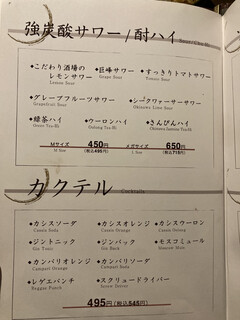 強炭酸サワー/酎ハイ
◆こだわり酒場の
レモンサワー
Lemon Sour
◆巨峰サワー
Grape Sour
◆すっきりトマトサワー
Tomato Sour
◆グレープフルーツサワー
Grapefruit Sour
◆シークワーサーサワー
Okinawa Lime Sour
◆緑茶ハイ
Green Tea-Hi
◆ウーロンハイ
Oolong Tea-Hi
◆さんぴんハイ
Mサイズ
M Size
450円
(税込495円)
メガサイズ
L Size
650円
(税込715円)
カクテル
Cocktails
◆カシスソーダ
Cassis Soda
◆カシスオレンジ
Cassis Orange
◆カシスウーロン
Cassis Oolong
◆ジントニック
Gin Tonic
◆ジンバック
Gin Back
◆モスコミュール
Moscow Mule
◆カンパリオレンジ
Campari Orange
◆カンパリソーダ
Campari Soda
◆レゲエパンチ
Reggae Punch
◆スクリュードライバー
Screw Driver
495円(税込545円)